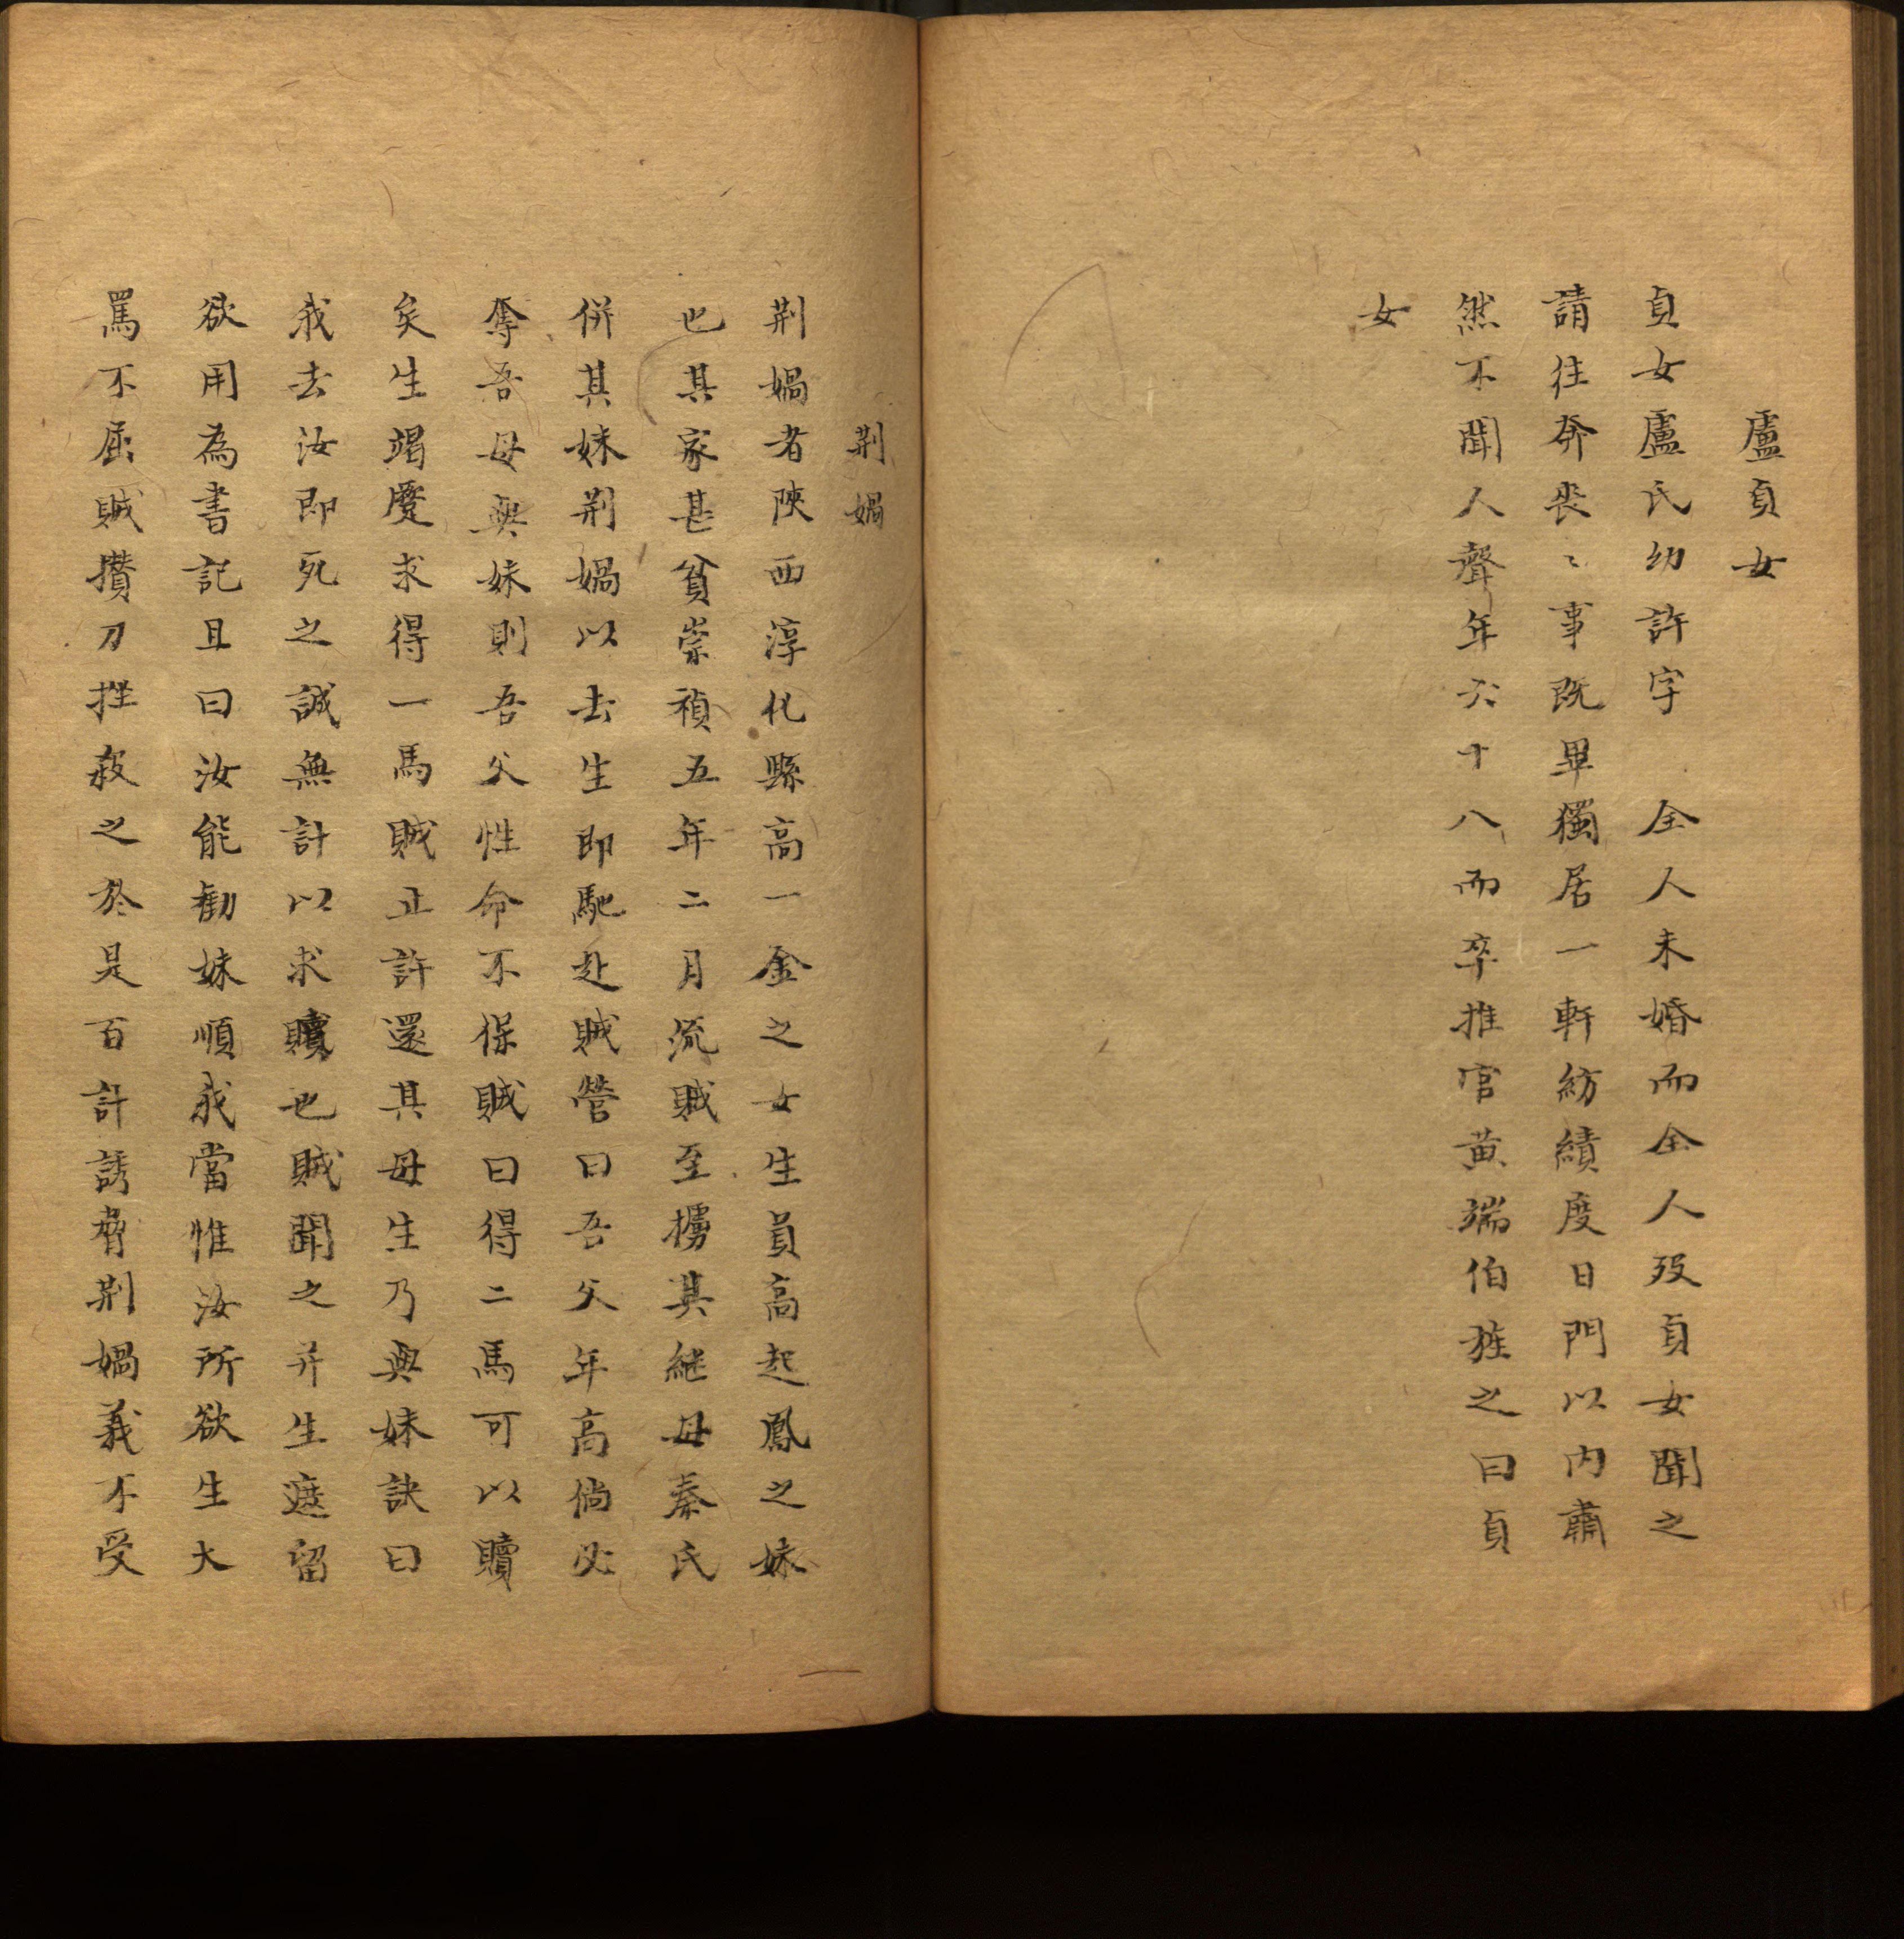 盧貞女
貞女盧氏幼許字　全人未婚而全人歿貞女聞之
請往奔喪〻事既畢獨居一軒紡績度日門以内肅
然不聞人聲年六十八而卒推官黄端伯旌之曰貞
女
荆媧
荆媧者陜西淳化縣高一金之女生員高起鳳之妹
也其家甚貧崇禎五年二月流賊至擄其継母秦氏
併其妹荆媧以去生即馳赴賊營曰吾父年高倘必
奪吾母與妹則吾父性命不保賊曰得二馬可以贖
矣生竭蹷求得一馬賊止許還其母生乃與妹訣曰
我去汝即死之誠無計以求贖也賊聞之并生遮留
欲用為書記且曰汝能勸妹順我當惟汝所欲生大
罵不屈賊攢刀挫殺之於是百計誘脅荆媧義不受